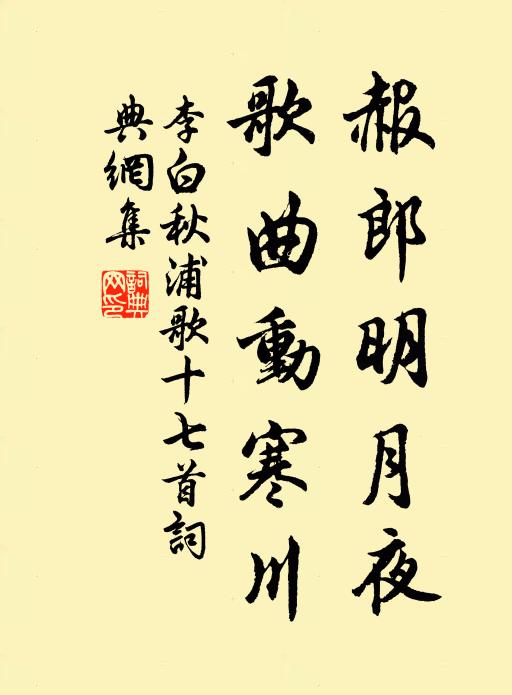 赧郎明月夜
歌曲動寒川
李白秋浦歌十七首詞
典網集
詞典網印